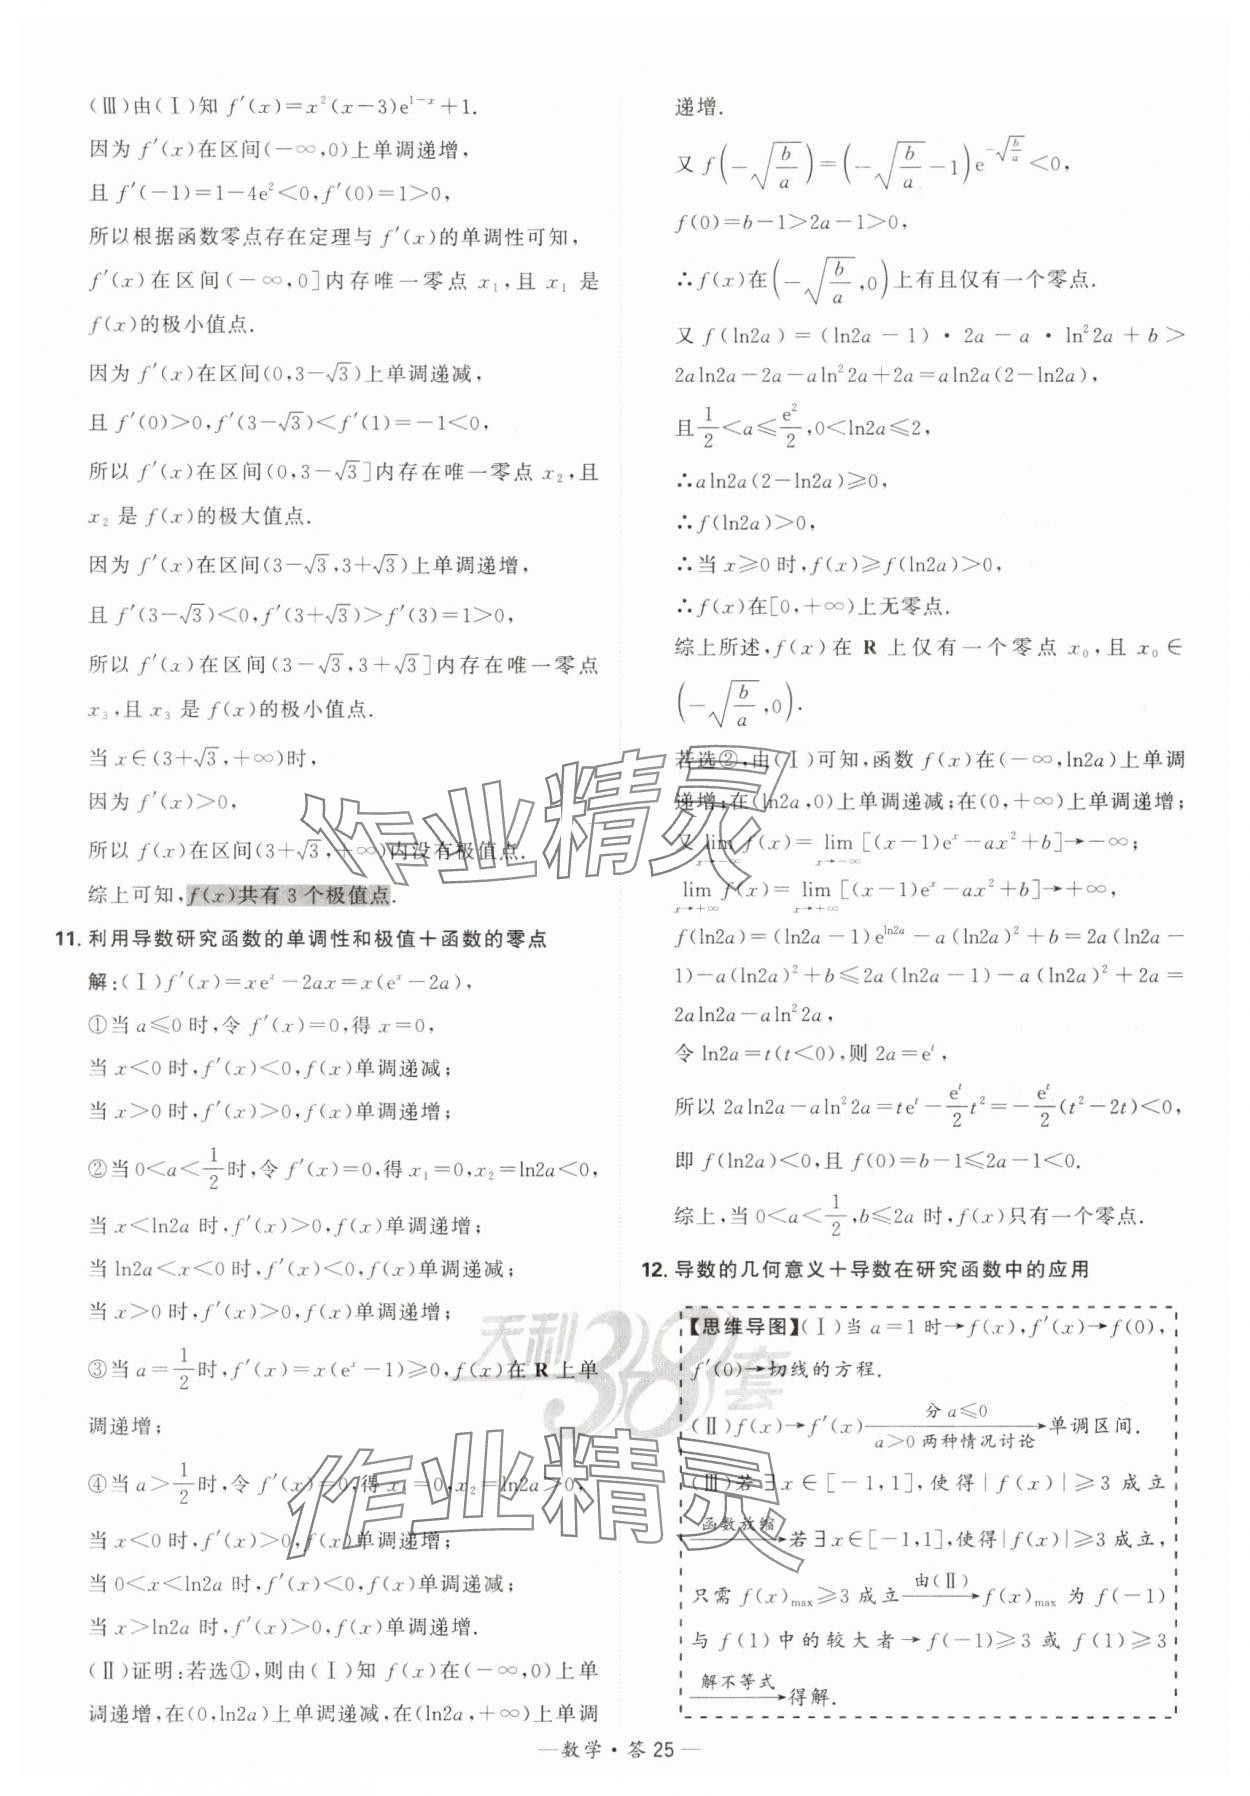 (Ⅲ)由(Ⅰ)知 f′(x)=x²(x−3)e¹⁻ˣ+1.
因为 f′(x)在区间(−∞,0)上单调递增,
且 f′(−1)=1−4e²<0,f′(0)=1>0,
所以根据函数零点存在定理与 f′(x)的单调性可知,
f′(x)在区间(−∞,0]内存唯一零点 x₁,且 x₁ 是
f(x)的极小值点.
因为 f′(x)在区间(0,3−√3)上单调递减,
且 f′(0)>0,f′(3−√3)<f′(1)=−1<0,
所以 f′(x)在区间(0,3−√3]内存在唯一零点 x₂,且
x₂ 是 f(x)的极大值点.
因为 f′(x)在区间(3−√3,3+√3)上单调递增,
且 f′(3−√3)<0,f′(3+√3)>f′(3)=1>0,
所以 f′(x)在区间(3−√3,3+√3]内存在唯一零点
x₃,且 x₃ 是 f(x)的极小值点.
当 x∈(3+√3,+∞)时,
因为 f′(x)>0,
所以 f(x)在区间(3+√3,+∞)内没有极值点.
综上可知,f(x)共有 3 个极值点.
11. 利用导数研究函数的单调性和极值+函数的零点
解:(Ⅰ)f′(x)=xeˣ−2ax=x(eˣ−2a),
①当 a≤0 时,令 f′(x)=0,得 x=0,
当 x<0 时,f′(x)<0,f(x)单调递减;
当 x>0 时,f′(x)>0,f(x)单调递增;
②当 0<a<1/2时,令 f′(x)=0,得 x₁=0,x₂=ln2a<0,
当 x<ln2a 时,f′(x)>0,f(x)单调递增;
当 ln2a<x<0 时,f′(x)<0,f(x)单调递减;
当 x>0 时,f′(x)>0,f(x)单调递增;
③当 a=1/2时,f′(x)=x(eˣ−1)≥0,f(x)在 R 上单
调递增;
④当 a>1/2时,令 f′(x)=0,得 x₁=0,x₂=ln2a>0,
当 x<0 时,f′(x)>0,f(x)单调递增;
当 0<x<ln2a 时,f′(x)<0,f(x)单调递减;
当 x>ln2a 时,f′(x)>0,f(x)单调递增.
(Ⅱ)证明:若选①,则由(Ⅰ)知 f(x)在(−∞,0)上单
调递增,在(0,ln2a)上单调递减,在(ln2a,+∞)上单调
递增.
又 f(−√(b/a))=(−√(b/a)−1)e^(−√(b/a))<0,
f(0)=b−1>2a−1>0,
∴f(x)在(−√(b/a),0)上有且仅有一个零点.
又 f(ln2a)=(ln2a−1)·2a−a·ln²2a+b>
2aln2a−2a−aln²2a+2a=aln2a(2−ln2a),
且1/2<a≤e²/2,0<ln2a≤2,
∴aln2a(2−ln2a)≥0,
∴f(ln2a)>0,
∴当 x≥0 时,f(x)≥f(ln2a)>0,
∴f(x)在[0,+∞)上无零点.
综上所述,f(x)在 R 上仅有一个零点 x₀,且 x₀∈
(−√(b/a),0).
若选②,由(Ⅰ)可知,函数 f(x)在(−∞,ln2a)上单调
递增;在(ln2a,0)上单调递减;在(0,+∞)上单调递增;
又 lim x→−∞ f(x)= lim x→−∞ [(x−1)eˣ−ax²+b]→−∞;
lim x→+∞ f(x)= lim x→+∞ [(x−1)eˣ−ax²+b]→+∞,
f(ln2a)=(ln2a−1)e^(ln2a)−a(ln2a)²+b=2a(ln2a−
1)−a(ln2a)²+b≤2a(ln2a−1)−a(ln2a)²+2a=
2aln2a−aln²2a,
令 ln2a=t(t<0),则 2a=eᵗ,
所以 2aln2a−aln²2a=teᵗ−eᵗ/2 t²=−eᵗ/2(t²−2t)<0,
即 f(ln2a)<0,且 f(0)=b−1≤2a−1<0.
综上,当 0<a<1/2,b≤2a 时,f(x)只有一个零点.
12. 导数的几何意义+导数在研究函数中的应用
【思维导图】(Ⅰ)当 a=1 时→f(x),f′(x)→f(0),
f′(0)→切线的方程.
(Ⅱ)f(x)→f′(x) 分 a≤0 a>0 两种情况讨论→单调区间.
(Ⅲ)若∃x∈[−1,1],使得|f(x)|≥3 成立
函数放缩→若∃x∈[−1,1],使得|f(x)|≥3 成立,
只需 f(x)max≥3 成立 由(Ⅱ)→f(x)max 为 f(−1)
与 f(1)中的较大者→f(−1)≥3 或 f(1)≥3
解不等式→得解.
—数学·答 25—
作业精灵
天利38套
作业精灵